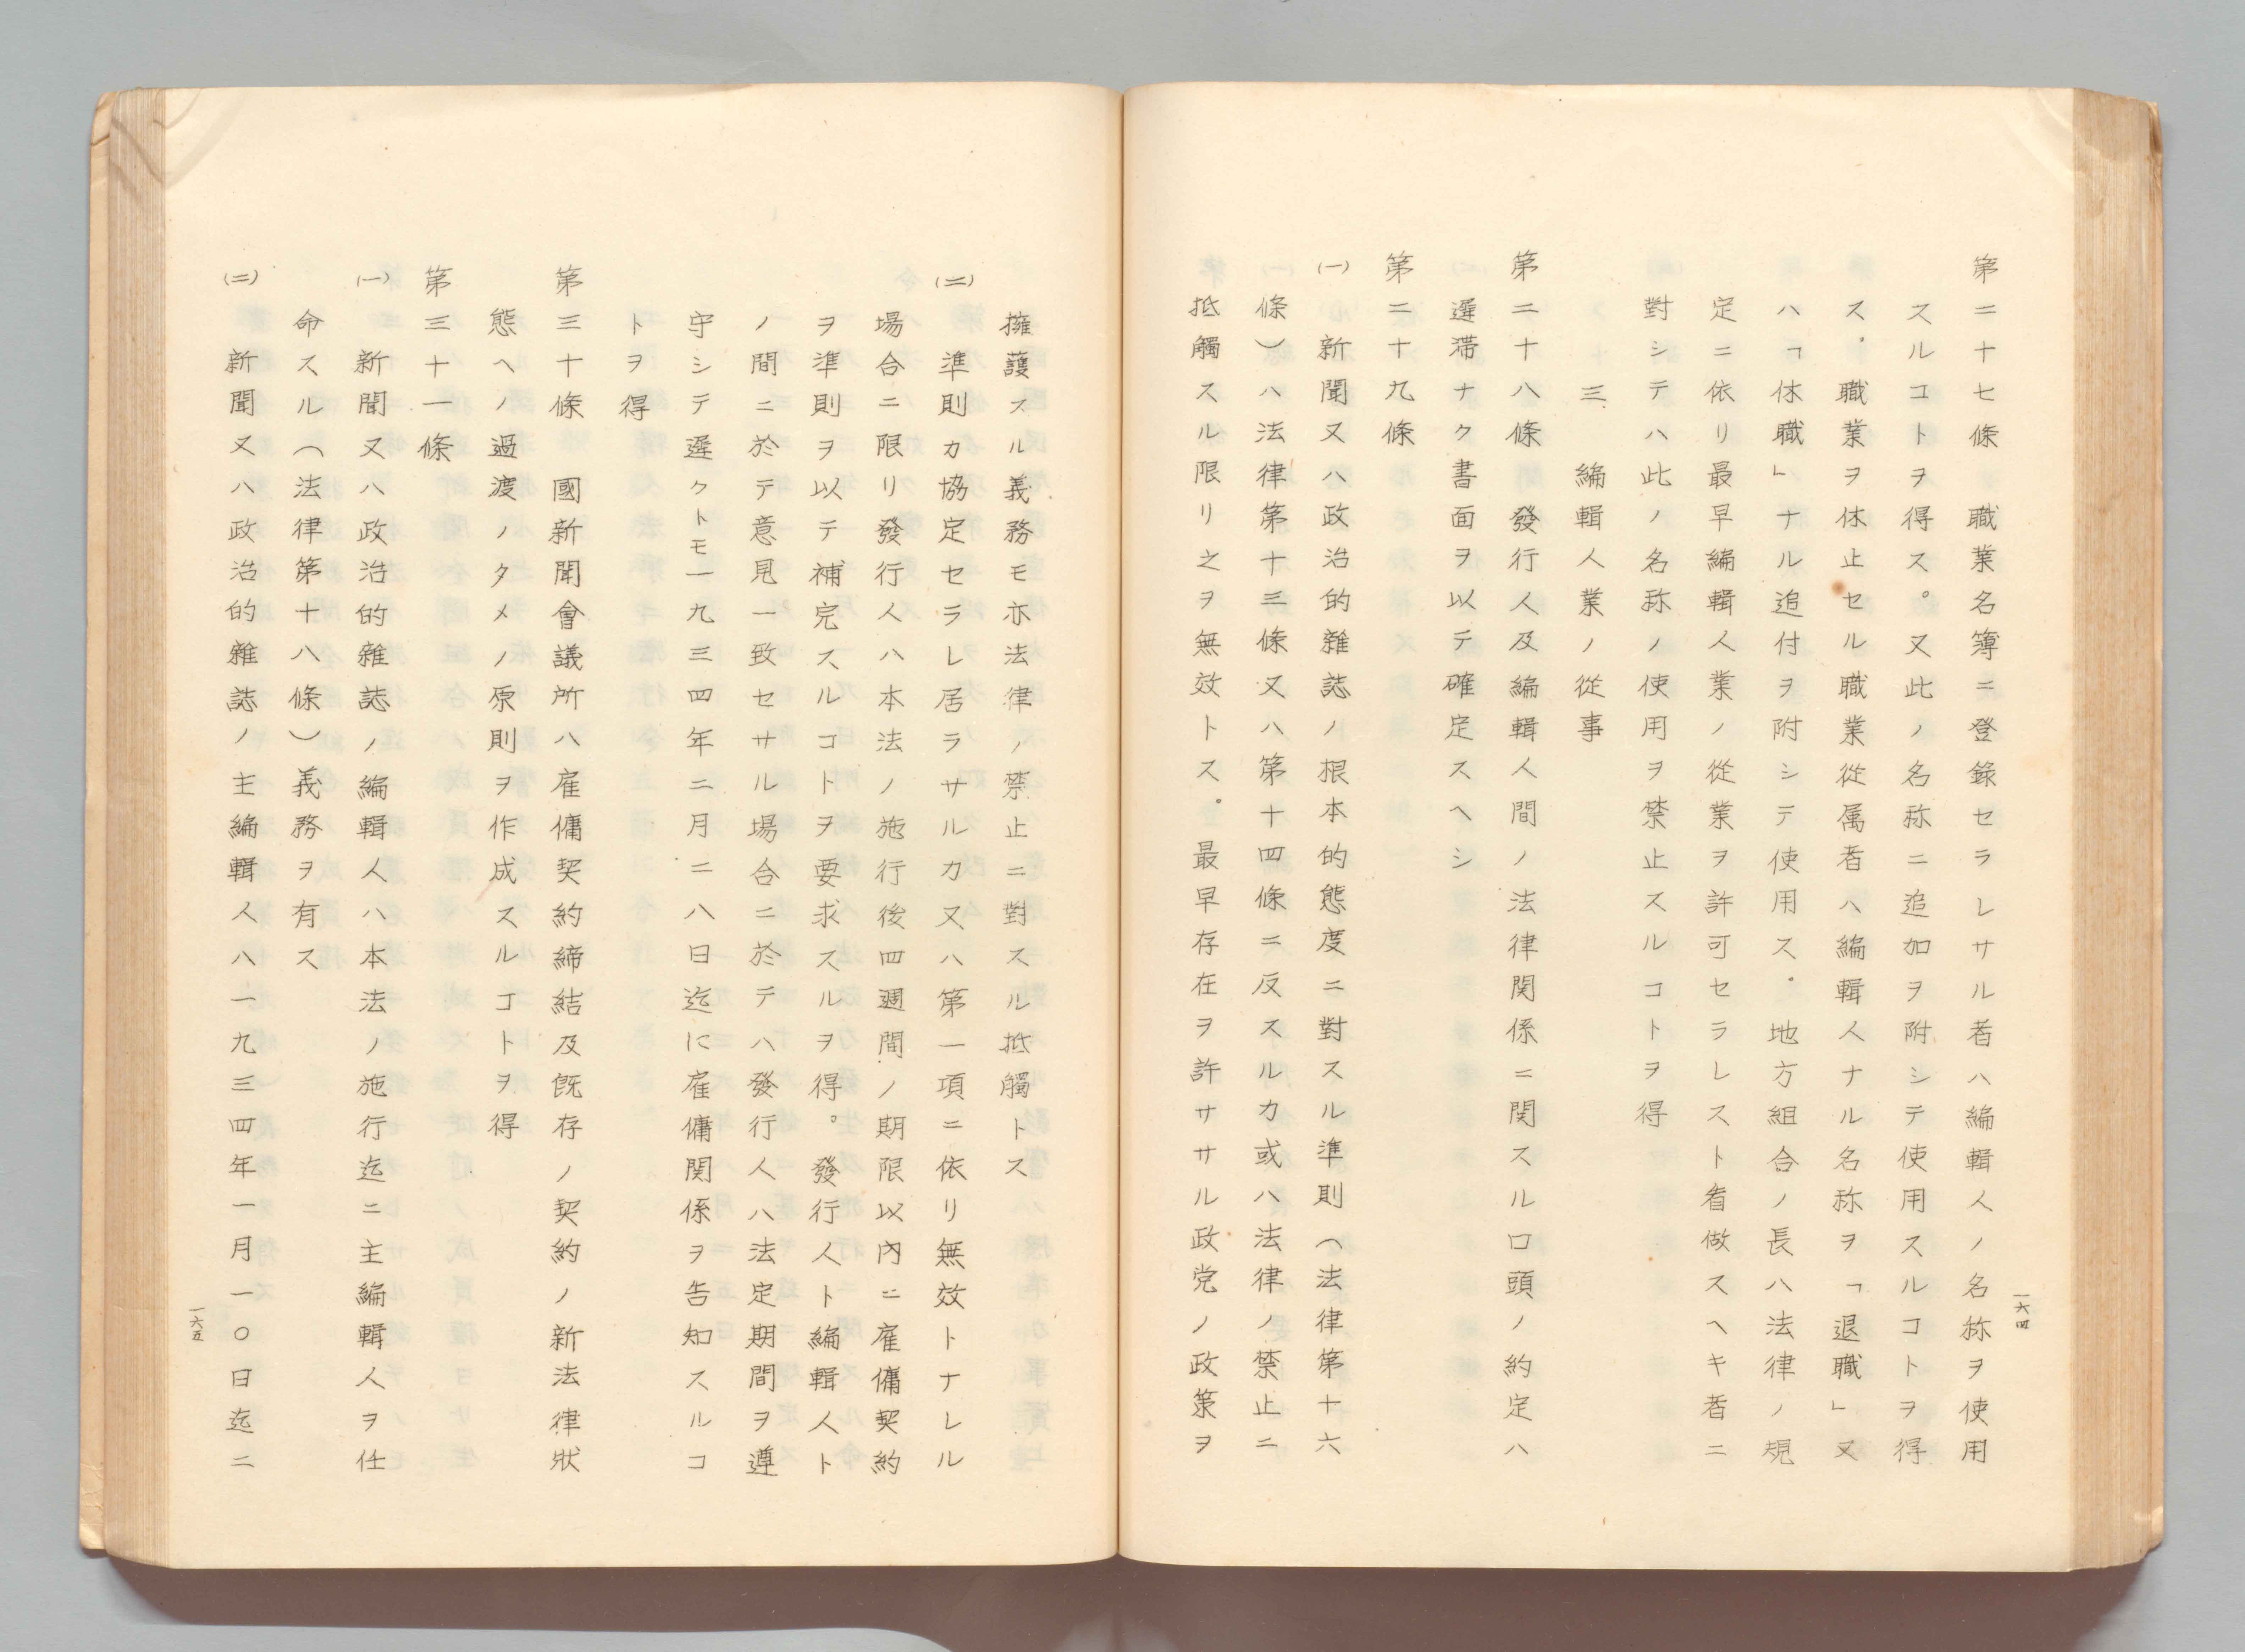 第二十七條　職業名簿ニ登錄セラレサル者ハ編輯人ノ名称ヲ使用
スルコトヲ得ス。又此ノ名称ニ追加ヲ附シテ使用スルコトヲ得
ス。職業ヲ休止セル職業從属者ハ編輯人ナル名称ヲ「退職」又
ハ「休職」ナル追付ヲ附シテ使用ス。地方組合ノ長ハ法律ノ規
定ニ依リ最早編輯人業ノ從業ヲ許可セラレスト看做スヘキ者ニ
對シテハ此ノ名称ノ使用ヲ禁止スルコトヲ得
三、編輯人業ノ從事
第二十八條　發行人及編輯人間ノ法律関係ニ関スル口頭ノ約定ハ
遲滞ナク書面ヲ以テ確定スヘシ
第二十九條
(一)　新聞又ハ政治的雜誌ノ根本的態度ニ對スル準則（法律第十六
條）ハ法律第十三條又ハ第十四條ニ反スルカ或ハ法律ノ禁止ニ
抵觸スル限リ之ヲ無效トス。最早存在ヲ許ササル政党ノ政策ヲ
一六四
擁護スル義務モ亦法律ノ禁止ニ對スル抵觸トス
(二)　準則カ協定セラレ居ラサルカ又ハ第一項ニ依リ無效トナレル
場合ニ限リ發行人ハ本法ノ施行後四週間ノ期限以内ニ雇傭契約
ヲ準則ヲ以テ補完スルコトヲ要求スルヲ得。發行人ト編輯人ト
ノ間ニ於テ意見一致セサル場合ニ於テハ發行人ハ法定期間ヲ遵
守シテ遲クトモ一九三四年二月二八日迄に雇傭関係ヲ告知スルコ
トヲ得
第三十條　國新聞會議所ハ雇傭契約締結及既存ノ契約ノ新法律狀
態ヘノ過渡ノタメノ原則ヲ作成スルコトヲ得
第三十一條
(一)　新聞又ハ政治的雜誌ノ編輯人ハ本法ノ施行迄ニ主編輯人ヲ任
命スル（法律第十八條）義務ヲ有ス
(二)　新聞又ハ政治的雜誌ノ主編輯人ハ一九三四年一月一〇日迄ニ
一六五